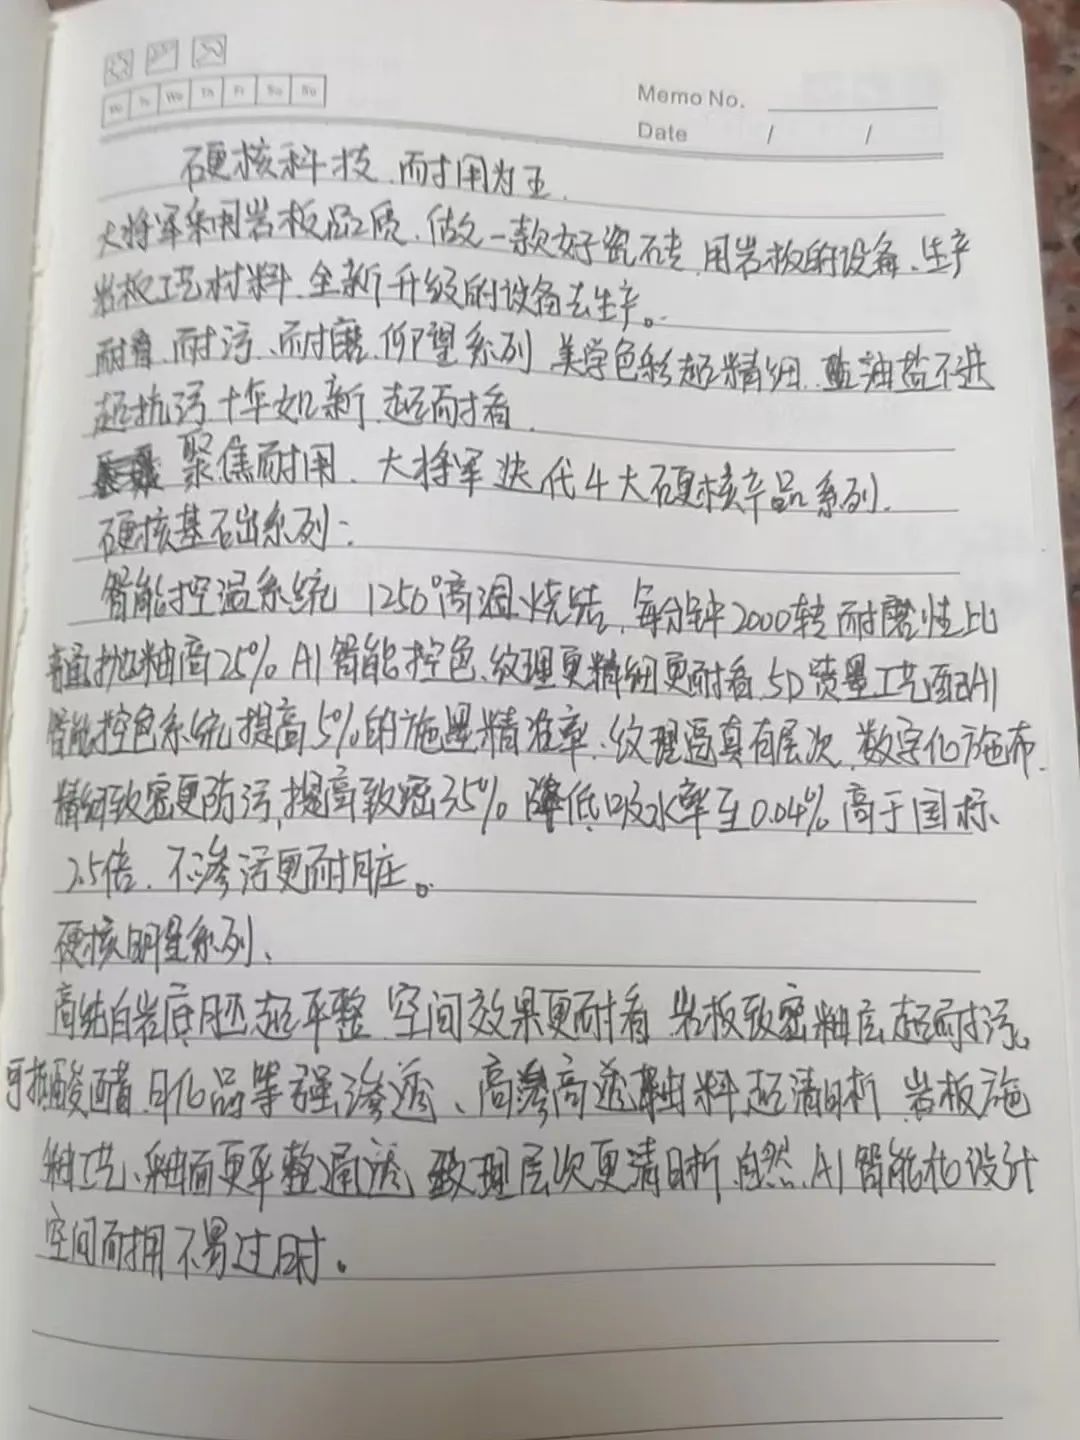 Memo No.
Date / /
Mo Tu We Th Fr Sa Su
硬核科技.耐用为王.
大将军采用岩板品质.做一款好瓷砖.用岩板的设备.生产
岩板工艺材料.全新升级的设备去生产。
耐看.耐污.耐磨.仰望系列 美学色彩超精细.油盐不进
超抗污 十年如新.超耐看.
聚焦耐用.大将军迭代4大硬核产品系列.
硬核基石出系列:
智能控温系统 1250°高温烧结.每分钟2000转耐磨性比
普通抛釉高25% AI智能控色.纹理更精细更耐看.5D喷墨工艺配AI
智能控色系统提高5%的施墨精准率.纹理逼真有层次.数字化施布.
精细致密更防污.提高致密35% 降低吸水率至0.04% 高于国标.
2.5倍.不渗污更耐用。
硬核明星系列、
高纯白岩底胚超平整 空间效果更耐看 岩板致密釉层超耐污。
可抗酸醋.日化品等强渗透、高透釉料超清晰 岩板施
釉工艺、釉面更平整通透 纹理层次更清晰.自然.AI智能化设计
空间耐用不易过时。